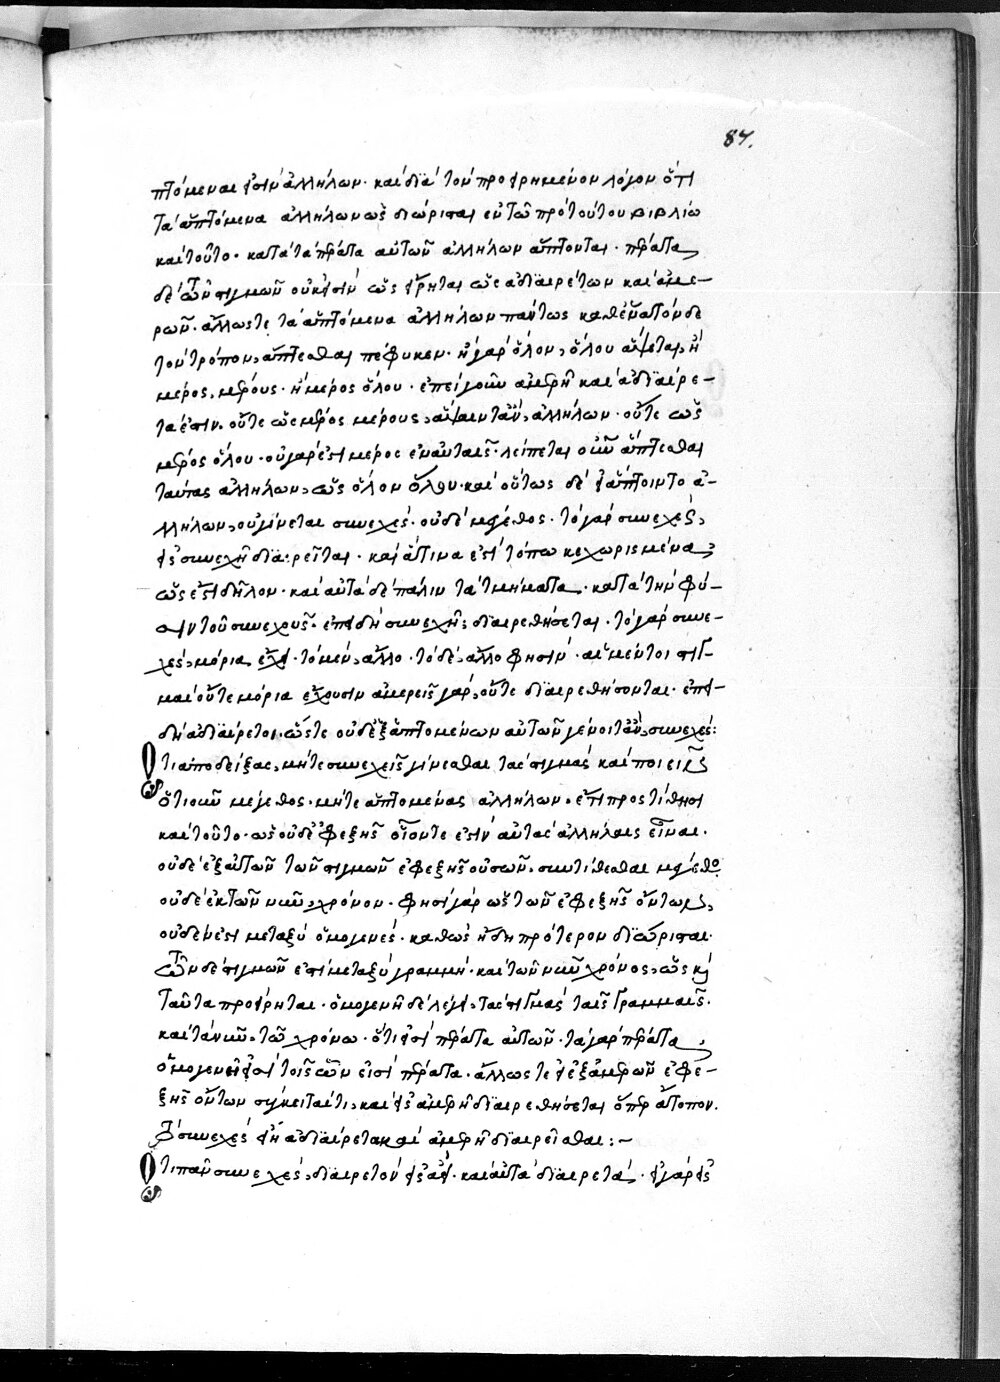 87.
πτόμεναι εἰσὶν ἀλλήλων· καὶ διὰ τὸν προειρημένον λόγον ὅτι
τὰ ἁπτόμενα ἀλλήλων ὡς διώρισται ἐν τῷ πρὸ τούτου βιβλίω
καὶ τοῦτο· κατὰ τὰ πέρατα αὐτῶν ἀλλήλων ἅπτονται· πέρατα
δὲ τῶν στιγμῶν οὐκ εἰσὶν ὡς εἴρηται ὡς ἀδιαιρέτων καὶ ἀμε-
ρῶν· ἄλλως τε τὰ ἁπτόμενα ἀλλήλων πάντως καθ' ἕνα τόνδε
τὸν τρόπον, ἅπτεσθαι πέφυκεν· ἢ γὰρ ὅλον, ὅλου ἅψεται, ἢ
μέρος, μέρους· ἢ μέρος ὅλου· ἐπεὶ γοῦν ἀμερῆ καὶ ἀδιαίρε-
τά ἐστιν, οὔτε ὡς μέρος μέρους, ἅψαιντ' ἂν, ἀλλήλων· οὔτε ὡς
μέρος ὅλου· οὐ γάρ ἐστι μέρος ἐν αὐταῖς· λείπεται οὖν ἅπτεσθαι
ταύτας ἀλλήλων, ὡς ὅλον ὅλου· καὶ οὕτως δὲ εἰ ἅπτοιντο ἀ-
λλήλων, οὐ γίνεται συνεχές· οὐδὲ μέγεθος· τὸ γὰρ συνεχές,
εἰς συνεχῆ διαιρεῖται· καὶ ἅτινά ἐστι τόπω κεχωρισμένα,
ὡς ἔστι δῆλον· καὶ αὐτὰ δὲ πάλιν τὰ τμήματα· κατὰ τὴν φύ-
σιν τοῦ συνεχοῦς· ἐπειδὴ συνεχῆ, διαιρεθήσεται· τὸ γὰρ συνε-
χές, μόρια ἔχει· τὸ μὲν, ἄλλο· τὸ δὲ, ἄλλο φησίν· αἱ μέντοι στιγ-
μαὶ οὔτε μόρια ἔχουσιν ἀμερεῖς γάρ, οὔτε διαιρεθήσονται· ἐπει-
δὴ ἀδιαίρετοι, ὥστε οὐδὲ ἐξ ἁπτομένων αὐτῶν γένοιτ' ἂν, συνεχές:
Ὅτι ἀποδείξας, μήτε συνεχεῖς γίνεσθαι τὰς στιγμὰς καὶ ποιεῖν
ὁτιοῦν μέγεθος· μήτε ἁπτομένας ἀλλήλων· ἔτι προστίθησι
καὶ τοῦτο· ὡς οὐδὲ ἐφεξῆς οἷόν τε ἐστὶν αὐτὰς ἀλλήλαις εἶναι·
οὐδὲ ἐξ αὐτῶν τῶν στιγμῶν ἐφεξῆς οὐσῶν, συντίθεσθαι μέγεθος
οὐδὲ ἐκ τῶν νῦν, χρόνον· φησὶ γὰρ ὡς τῶν ἐφεξῆς ὄντως,
οὐδέν ἐστι μεταξὺ ὁμογενές· καθὼς ἤδη πρότερον διώρισται·
τῶν δὲ στιγμῶν ἐστὶ μεταξὺ γραμμή· καὶ τῶν νῦν χρόνος, ὡς καὶ
ταῦτα προείρηται· ὁμογενῆ δὲ λέγει, τὰς στιγμὰς ταῖς γραμμαῖς·
καὶ τὰ νῦν, τῶ χρόνω· ὅτι εἰσὶ πέρατα αὐτῶν· τὰ γὰρ πέρατα
ὁμογενῆ εἰσὶ τοῖς ὧν εἰσὶ πέρατα· ἄλλως τε εἰ ἐξ ἀμερῶν ἐφε-
ξῆς ὄντων σύγκειταί τι, καὶ εἰς ἀμερῆ διαιρεθήσεται ὅπερ ἄτοπον·
τὸ συνεχὲς εἰς ἀδιαίρετα καὶ ἀμερῆ διαιρεῖσθαι:~
Ὅτι πᾶν συνεχές, διαιρετὸν εἰς ἀεὶ· καὶ αὐτὰ διαιρετά· εἰ γὰρ εἰς